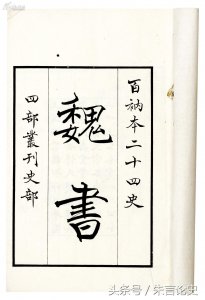 百衲本二十四史
魏書
四部叢刊史部
头条号/朱言论史